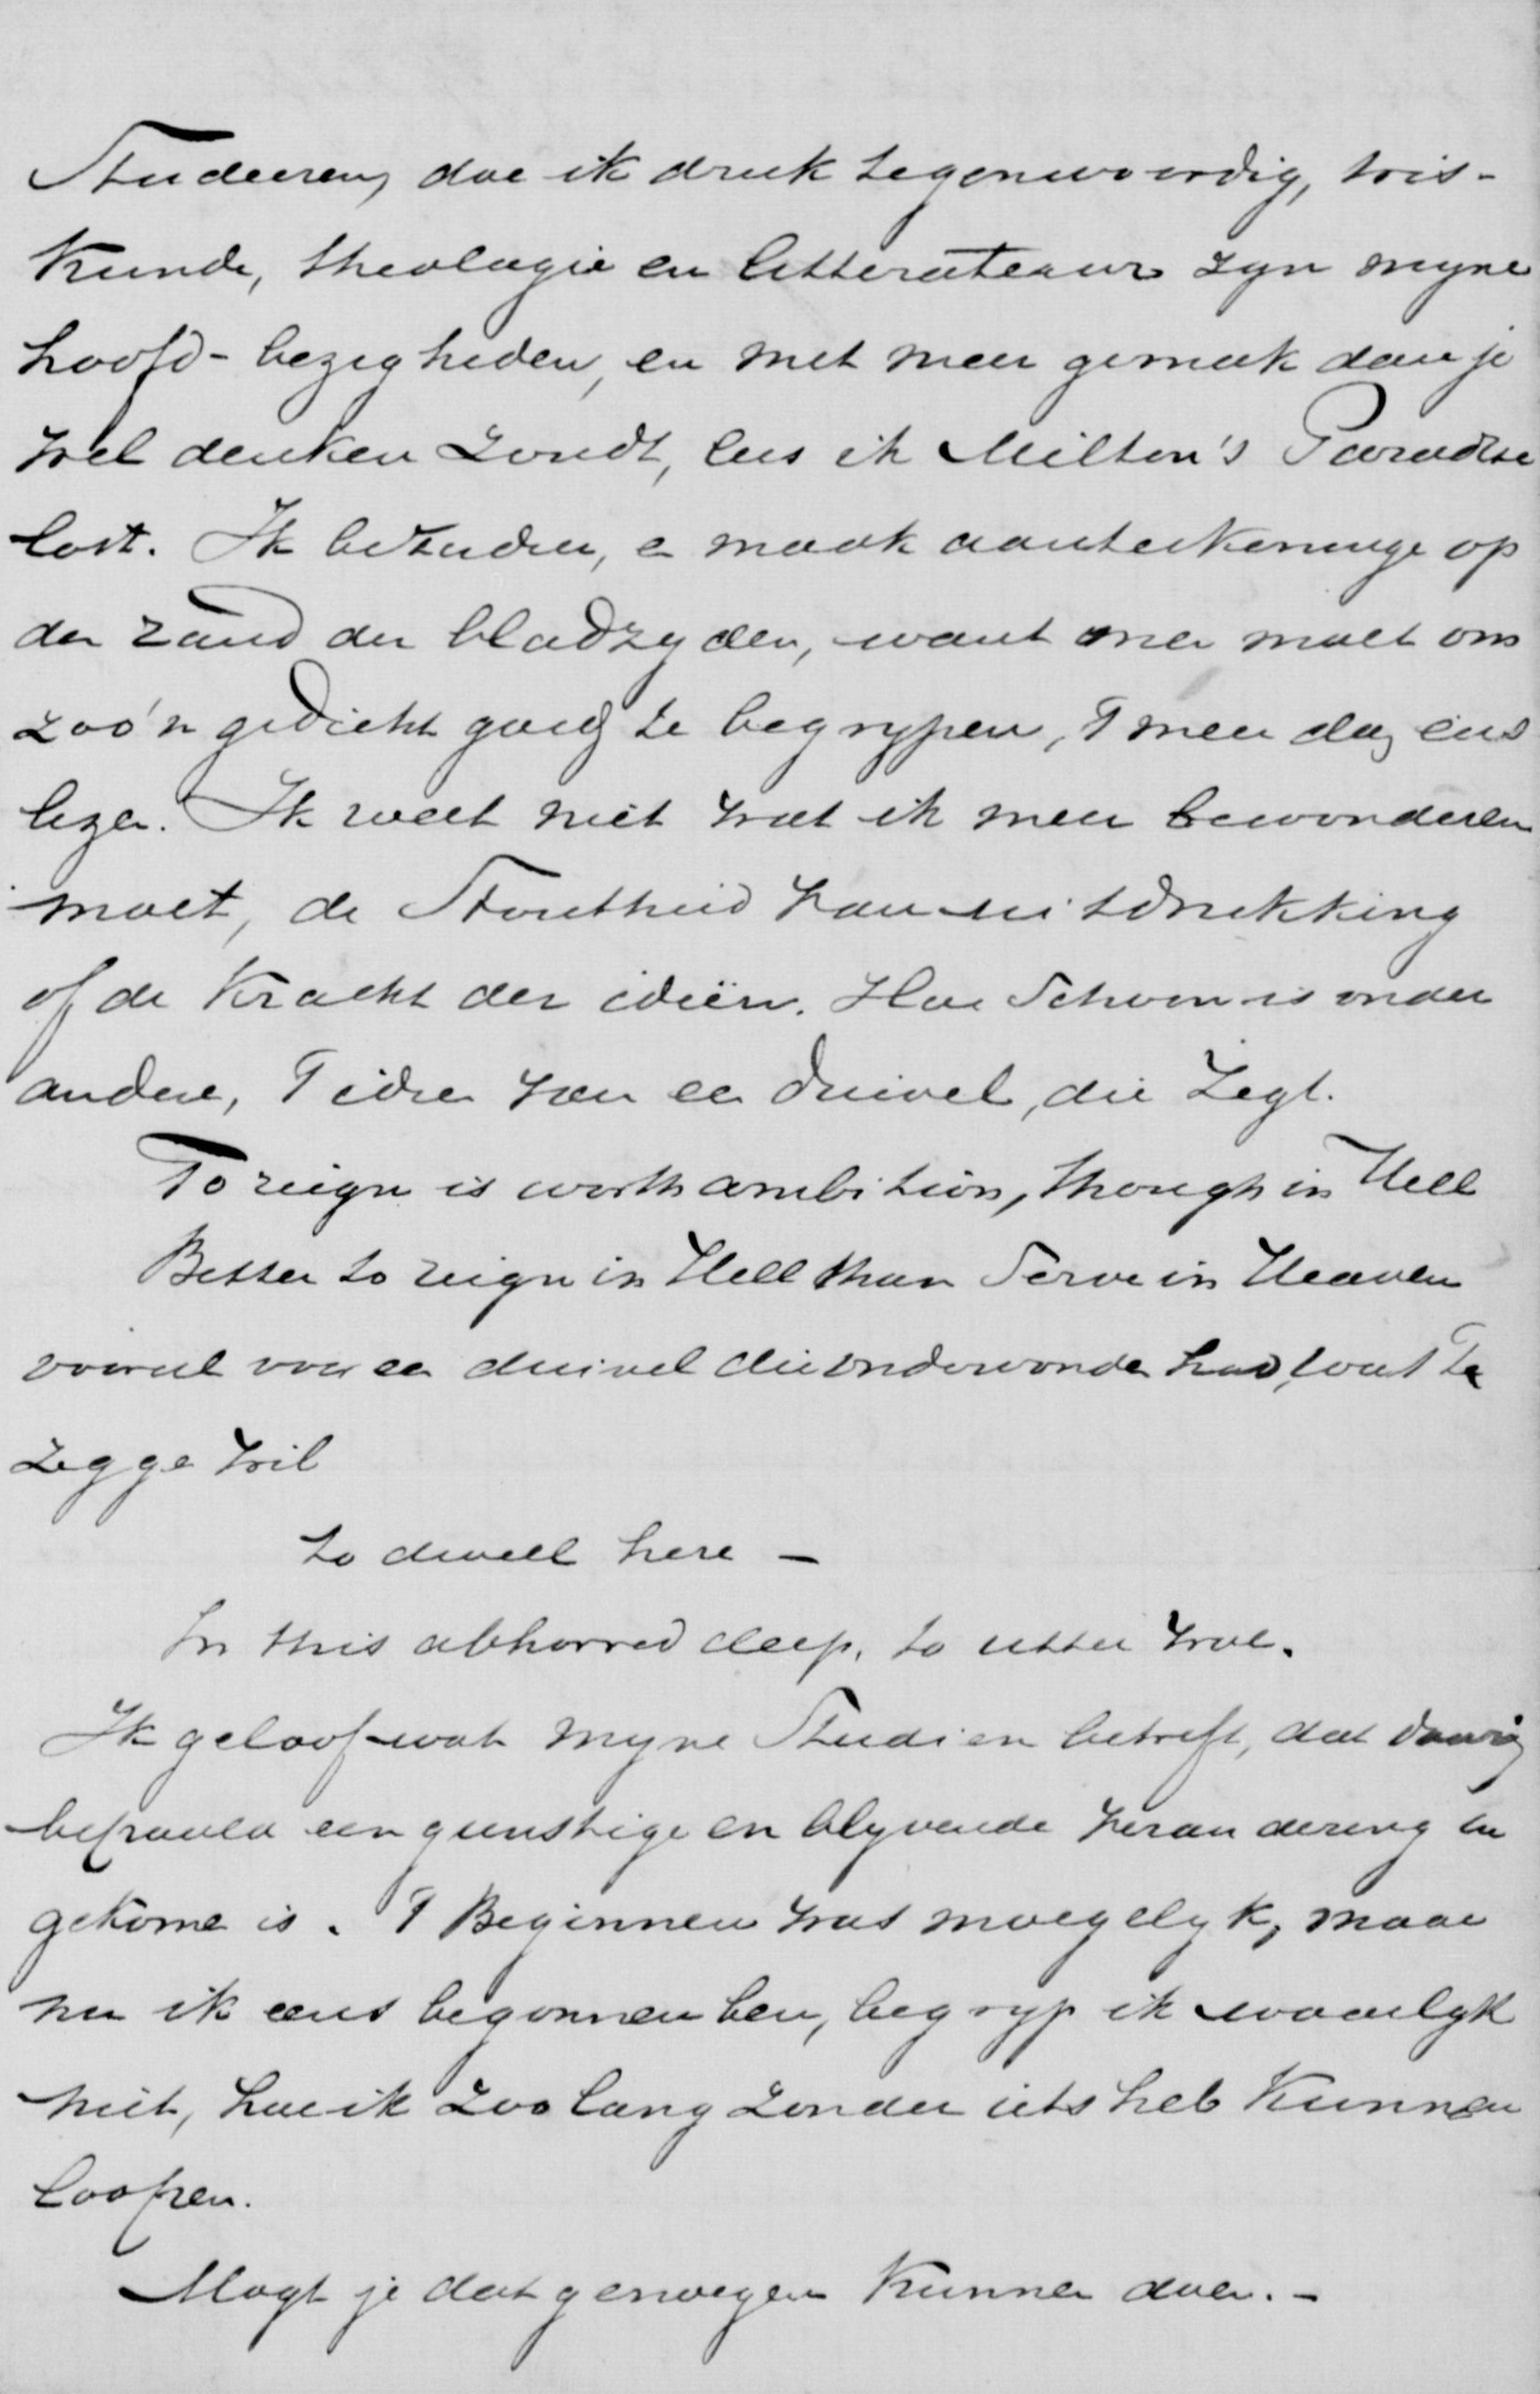 Studeeren, doe ik druk tegenwoordig, wis-
kunde, theologie en litterateuur zyn myne
hoofd-bezigheden, en met meer gemak dan je
wel denken zoudt, lees ik Milton's Paradise
lost. Ik bestudeer, e maak aanteekeninge op
den rand der bladzyden, want men moet om
zoo'n gedicht goed te begrypen, 't meer dan eens
lezen. Ik weet niet wat ik meer bewonderen
moet, de Stoutheid van uitdrukking
of de kracht der ideën. Hoe Schoon is onder
andere, 't idee van een duivel, die zegt.
To reign is worth ambition, though in Hell
Better to reign in Hell than Serve in Heaven
vooral voor een duivel die ondervonden had, wat 't
zegge wil
to dwell here -
In this abhorred deep, to utter woe.
Ik geloof wat myne Studien betreft, dat daarin
bepaald een gunstige en blyvende verandering in
gekome is. 't Beginnen was moeyelyk, maar
nu ik eens begonnen ben, begryp ik waarlyk
niet, hoe ik zoo lang zonder iets heb kunnen
loopen.
Mogt je dat genoegen kunnen doen. -